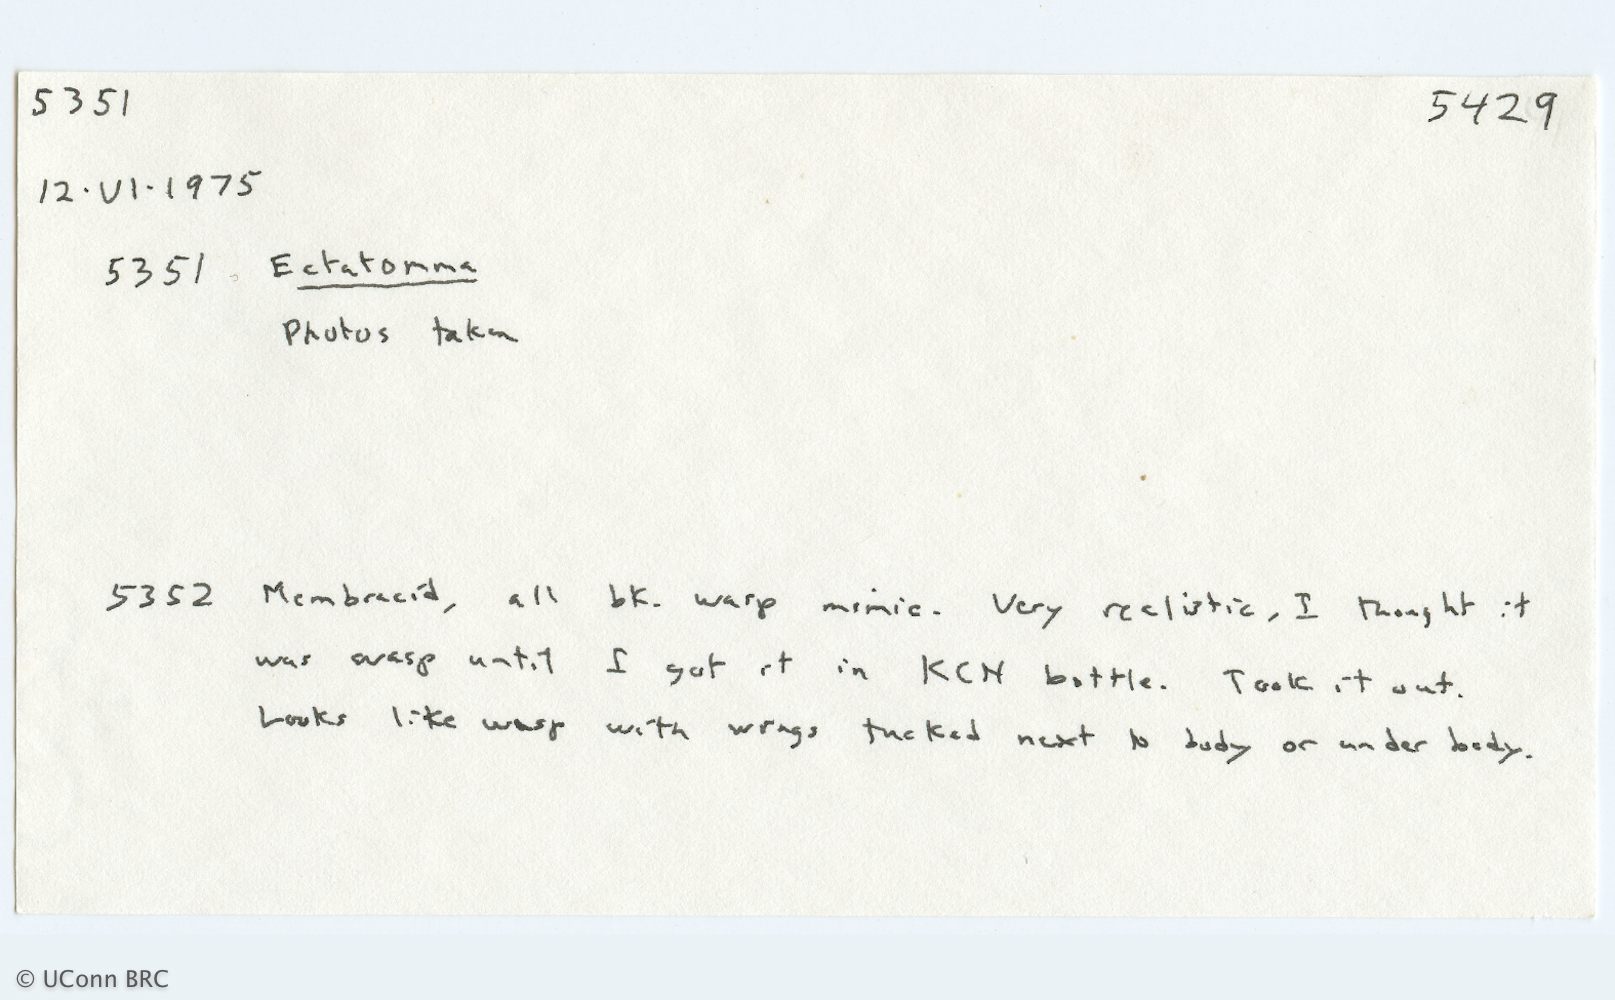 5351 5429
12·VI·1975
5351 Ectatomma
Photos taken
5352 Membracid, all bk. wasp mimic. Very realistic, I thought it
was wasp until I got it in KCN bottle. Took it out.
Looks like wasp with wings tucked next to body or under body.
© UConn BRC